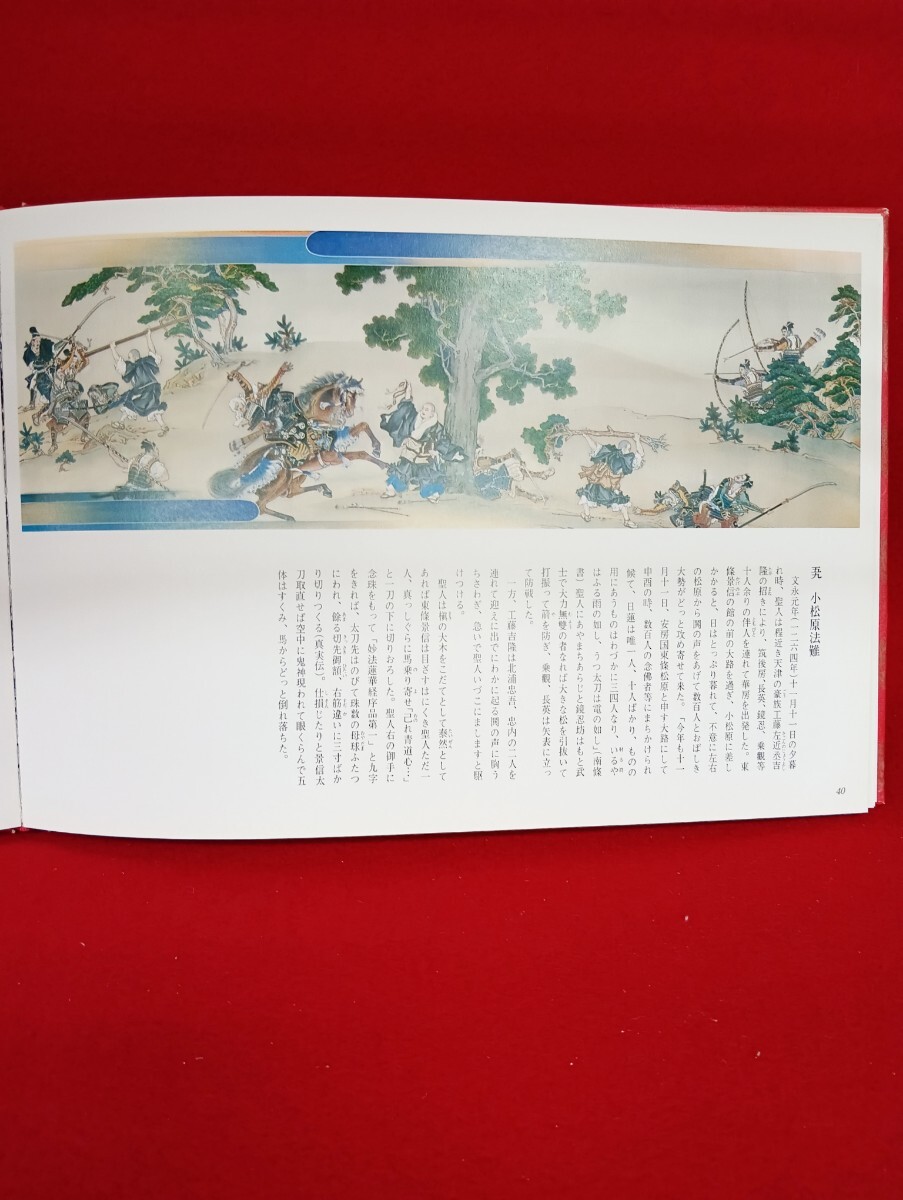 小松原法難
文永元年(一二六四年)十一月十一日の夕暮
れ時、聖人は程近き天津の豪族工藤左近丞吉
隆の招きにより、筑後房、長英、鏡忍、乗観等
十人余りの伴人を連れて華房を出発した。東
條景信の館の前の大路を過ぎ、小松原に差し
かかると、日はとっぷり暮れて、不意に左右
の松原から鬨の声をあげて数百人とおぼしき
大勢がどっと攻め寄せて来た。「今年も十一
月十一日、安房国東條松原と申す大路にして
申酉の時、数百人の念佛者等にまちかけられ
候て、日蓮は唯一人、十人ばかり、ものの
用にあうものはわづかに三四人なり、いるや
はふる雨の如し、うつ太刀は電の如し」(南條
書)聖人にあやまちあらじと鏡忍坊はもと武
士で大力無雙の者なれば大きな松を引抜いて
打振って前を防ぎ、乗観、長英は矢表に立っ
て防戦した。
一方、工藤吉隆は北浦忠吾、忠内の二人を
連れて迎えに出でにわかに起る鬨の声に胸う
ちさわぎ、急いで聖人いづこにましますと駆
けつける。
聖人は槇の大木をこだてとして泰然として
あれば東條景信は目ざすはにくき聖人ただ一
人、真っしぐらに馬乗り寄せ「己れ青道心…」
と一刀の下に切りおろした。聖人右の御手に
念珠をもって「妙法蓮華経序品第一」と九字
をきれば、太刀先はのびて珠数の母球ふたつ
にわれ、餘る切先御額、右筋違いに三寸ばか
り切りつくる(真実伝)。仕損じたりと景信太
刀取直せば空中に鬼神現われて眼くらんで五
体はすくみ、馬からどっと倒れ落ちた。
40